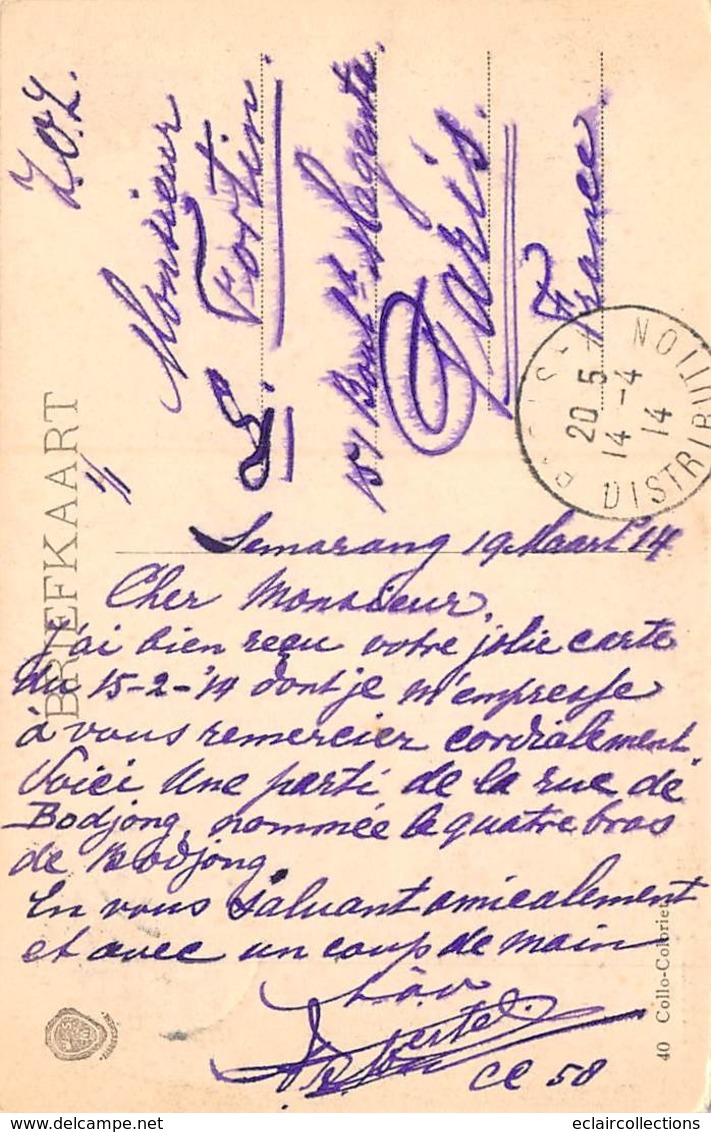 Z.O.Z.
BRIEFKAART
Monsieur
L. Fortin.
151 Boul.d Magenta.
Paris.
France.
DISTRIBUTION
20 5
14 -4
14
Semarang 19 Maart '14
Cher Monsieur,
J'ai bien reçu votre jolie carte
du 15-2-'14 dont je m'empresse
à vous remercier cordialement
Voici une parti de la rue de
Bodjong, nommée le quatre bras
de Bodjong.
En vous saluant amicalement
et avec un coup de main
à.v.
CC 58
40 Collo-Coloriet
eclaircollections